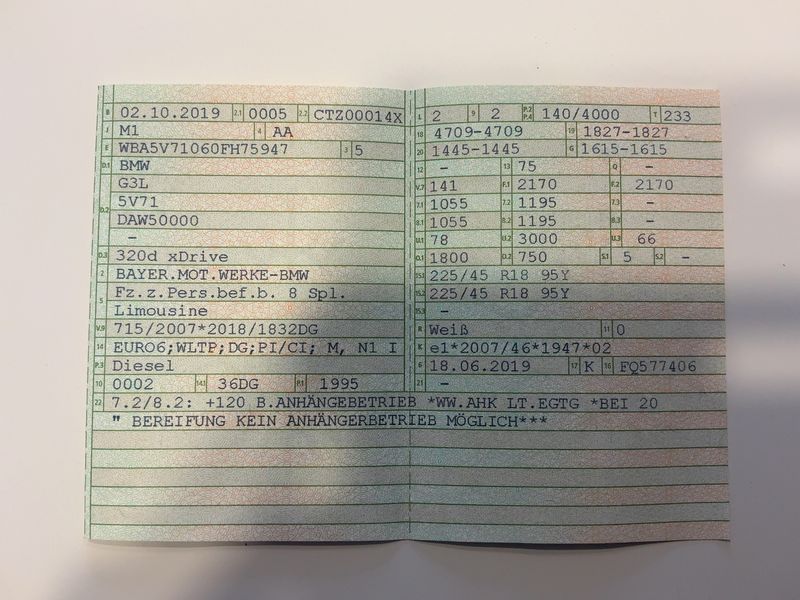 B 02.10.2019 2.1 0005 2.2 CTZ00014X
J M1 4 AA
E WBA5V71060FH75947 3 5
D.1 BMW
G3L
D.2 5V71
DAW50000
–
D.3 320d xDrive
2 BAYER.MOT.WERKE-BMW
5 Fz.z.Pers.bef.b. 8 Spl.
Limousine
V.9 715/2007*2018/1832DG
14 EURO6;WLTP;DG;PI/CI; M, N1 I
P.3 Diesel
10 0002 14.1 36DG P.1 1995
L 2 9 2 P.2 P.4 140/4000 T 233
18 4709-4709 19 1827-1827
20 1445-1445 G 1615-1615
12 – 13 75 Q –
V.7 141 F.1 2170 F.2 2170
7.1 1055 7.2 1195 7.3 –
8.1 1055 8.2 1195 8.3 –
U.1 78 U.2 3000 U.3 66
O.1 1800 O.2 750 S.1 5 S.2 –
15.1 225/45 R18 95Y
15.2 225/45 R18 95Y
15.3 –
R Weiß 11 0
K e1*2007/46*1947*02
6 18.06.2019 17 K 16 FQ577406
21 –
22 7.2/8.2: +120 B.ANHÄNGEBETRIEB *WW.AHK LT.EGTG *BEI 20
" BEREIFUNG KEIN ANHÄNGERBETRIEB MÖGLICH***